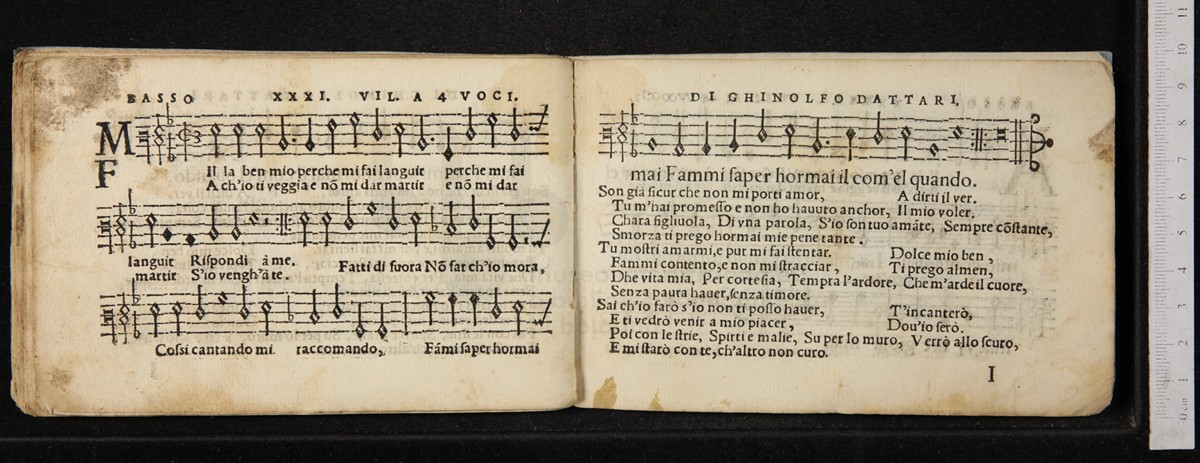 BASSO XXXI. VIL. A 4 VOCI.
M
F
Il la ben mio perche mi fai languir perche mi fai
A ch'io ti veggia e nõ mi dar martir e nõ mi dar
languir Rispondi à me.
martir S'io vengh'à te. Fatti di fuora Nõ far ch'io mora,
Cossi cantando mi raccomando, Fámi saper hormai
DI GHINOLFO DATTARI.
mai Fammi saper hormai il com'el quando.
Son già sicur che non mi porti amor, A dirti il ver.
Tu m'hai promesso e non ho hauuto anchor, Il mio voler.
Chara figliuola, Di vna parola, S'io son tuo amãte, Sempre cõstante,
Smorza ti prego hormai mie pene tante.
Tu mostri amarmi, e pur mi fai stentar. Dolce mio ben,
Fammi contento, e non mi stracciar, Ti prego almen,
Dhe vita mia, Per cortesia, Tempra l'ardore, Che m'arde il cuore,
Senza paura hauer, senza timore.
Sai ch'io farò s'io non ti posso hauer, T'incanterò,
E ti vedrò venir a mio piacer, Dou'io serò.
Poi con le strie, Spirti e malie, Su per lo muro, Verrò allo scuro,
E mi starò con te, ch'altro non curo.
I
0 cm 1 2 3 4 5 6 7 8 9 10 11